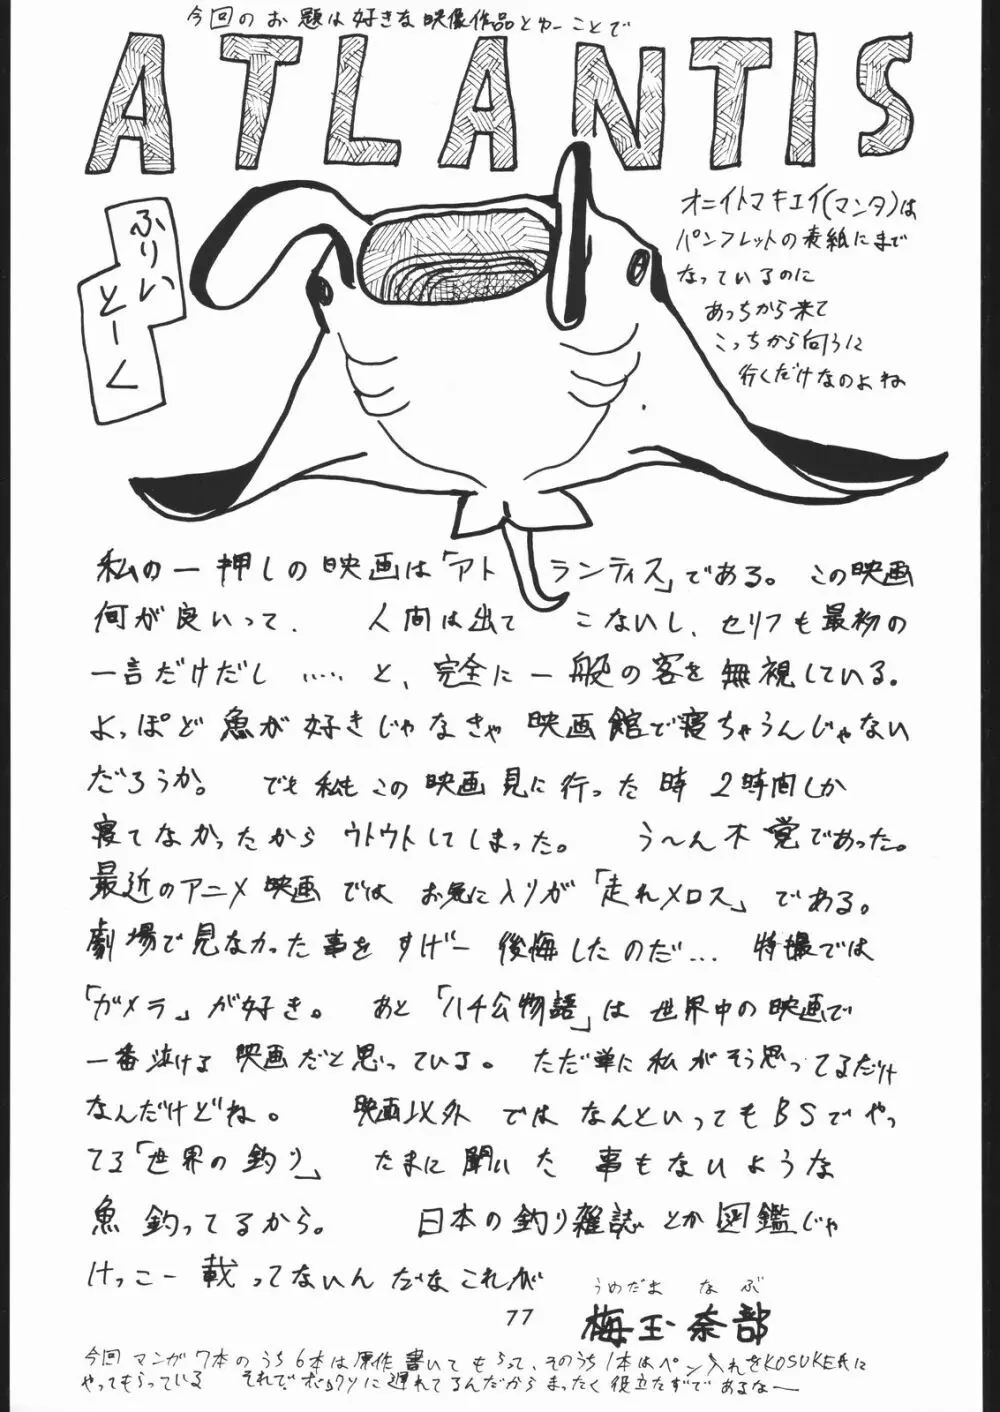 今回のお題は好きな映像作品とゆーことで
ATLANTIS
ふりい
とーく
オニイトマキエイ(マンタ)は
パンフレットの表紙にまで
なっているのに
あっちから来て
こっちから向うに
行くだけなのよね
私の一押しの映画は「アトランティス」である。この映画
何が良いって、人間は出てこないし、セリフも最初の
一言だけだし……と、完全に一般の客を無視している。
よっぽど魚が好きじゃなきゃ映画館で寝ちゃうんじゃない
だろうか。でも私もこの映画見に行った時2時間しか
寝てなかったからウトウトしてしまった。う〜ん不覚であった。
最近のアニメ映画ではお気に入りが「走れメロス」である。
劇場で見なかった事をすげー後悔したのだ…特撮では
「ガメラ」が好き。あと「ハチ公物語」は世界中の映画で
一番泣ける映画だと思っている。ただ単に私がそう思ってるだけ
なんだけどね。映画以外ではなんといってもBSでやっ
てる「世界の釣り」たまに聞いた事もないような
魚釣ってるから。日本の釣り雑誌とか図鑑じゃ
けっこー載ってないんだなこれが
うめだま なぶ
梅玉奈部
77
今回マンガ7本のうち6本は原作書いてもらって、そのうち1本はペン入れをKOSUKE氏に
やってもらっている それで遅れてるんだからまったく役立たずであるなー